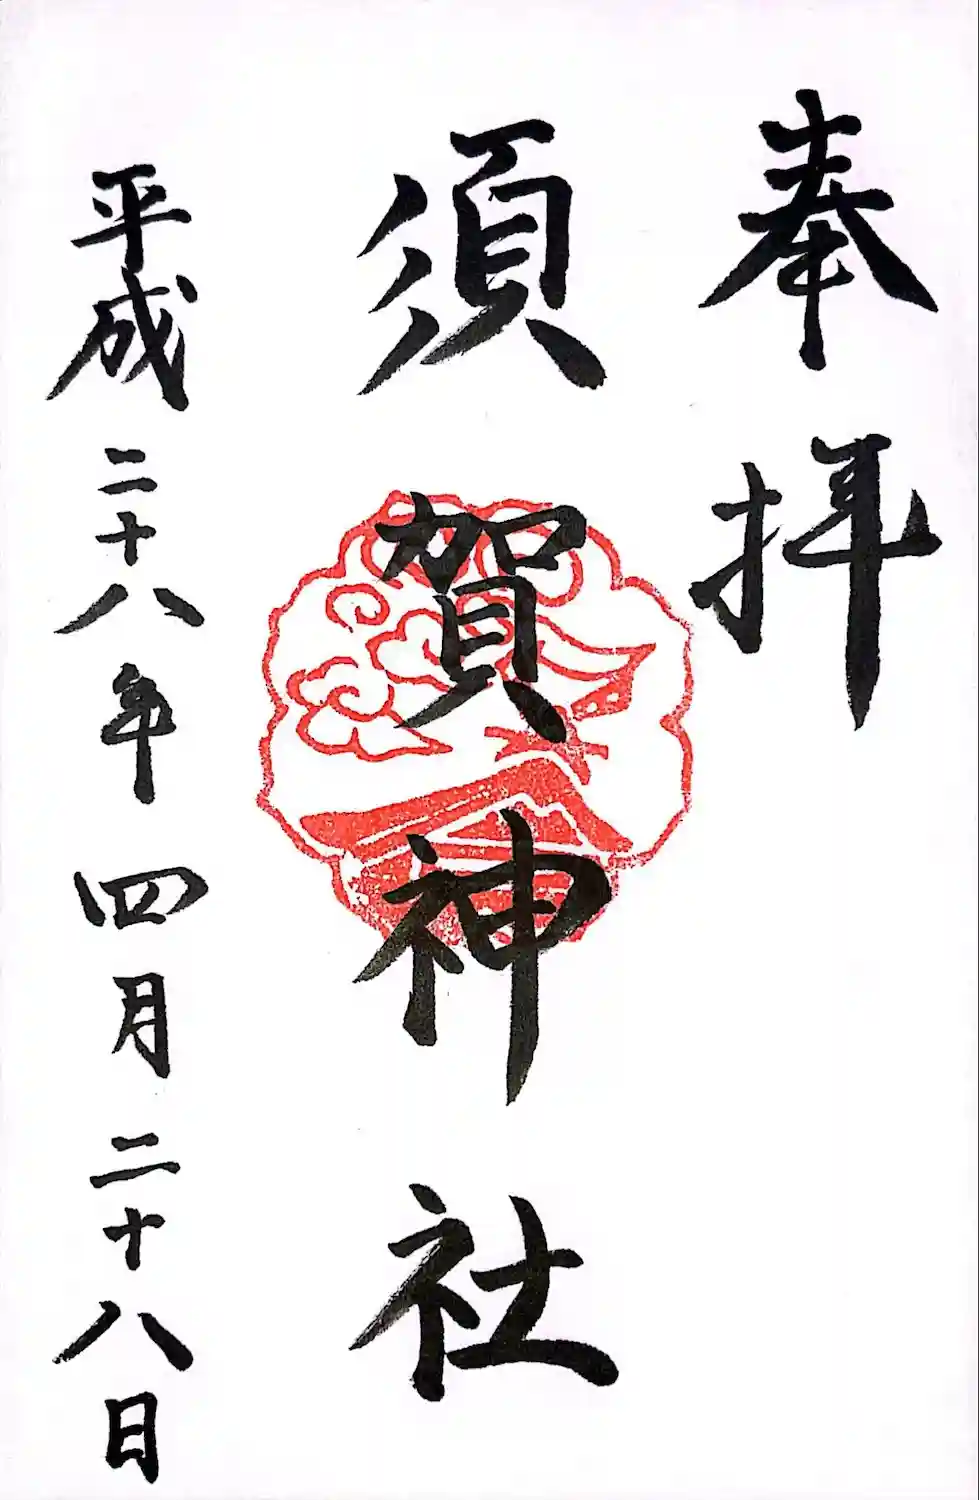 奉拝
須賀神社
平成二十八年四月二十八日